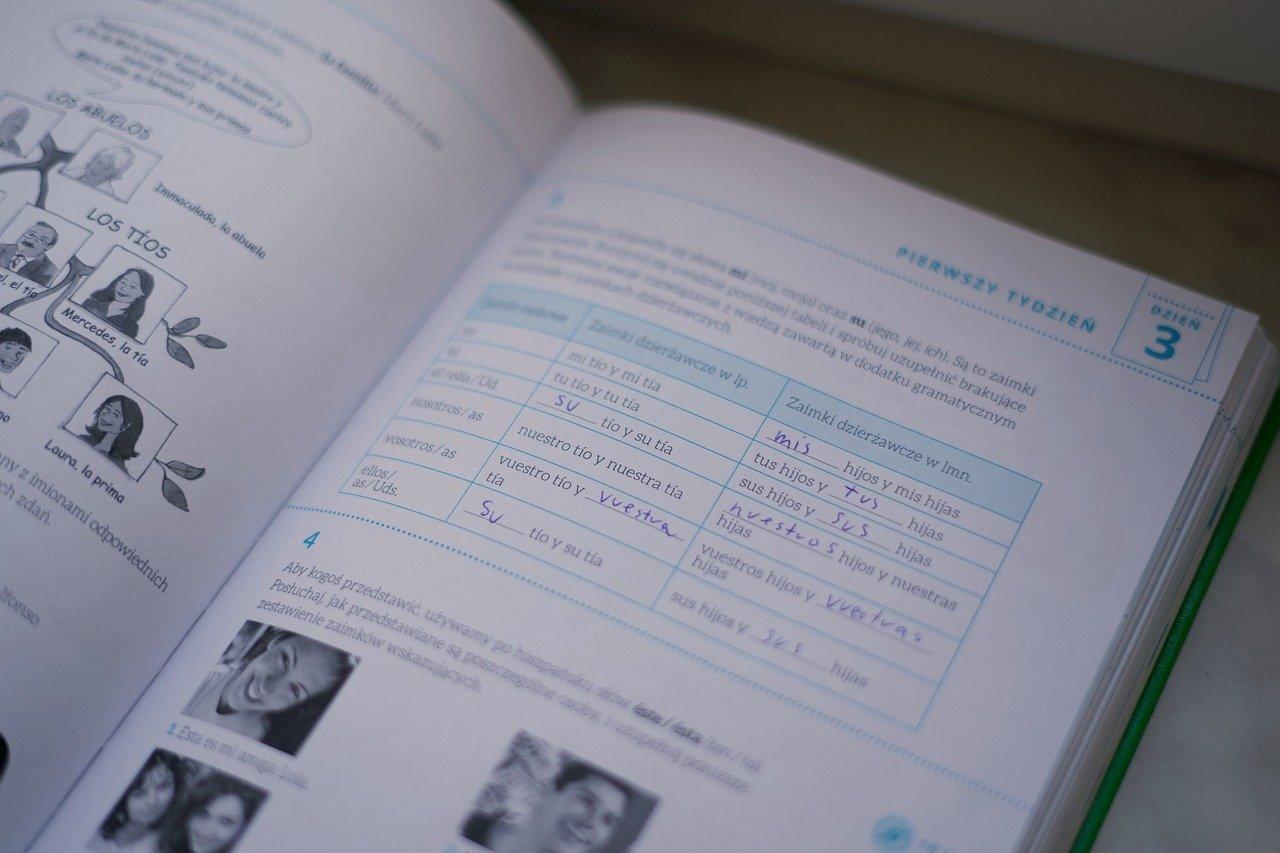 LOS ABUELOS
Immaculada, la abuela
LOS TÍOS
el tío
Mercedes, la tía
Laura, la prima
z imionami odpowiednich
ch zdań.
PIERWSZY TYDZIEŃ
DZIEŃ
3
mi (mój, moja) oraz su (jego, jej, ich). Są to zaimki
poniższej tabeli i spróbuj uzupełnić brakujące
rozwiązanie z wiedzą zawartą w dodatku gramatycznym
o zaimkach dzierżawczych.
Zaimki dzierżawcze w lp.
Zaimki dzierżawcze w lmn.
yo
mi tío y mi tía
mis hijos y mis hijas
tú
tu tío y tu tía
tus hijos y tus hijas
él/ella/Ud.
su tío y su tía
sus hijos y sus hijas
nosotros/as
nuestro tío y nuestra tía
nuestros hijos y nuestras
hijas
vosotros/as
vuestro tío y vuestra
tía
vuestros hijos y vuestras
hijas
ellos/
as/Uds.
su tío y su tía
sus hijos y sus hijas
4
Aby kogoś przedstawić, używamy po hiszpańsku słów éste / ésta (ten / ta).
Posłuchaj, jak przedstawiane są poszczególne osoby, i uzupełnij poniższe
zestawienie zaimków wskazujących.
1 Esta es mi amiga Lola.